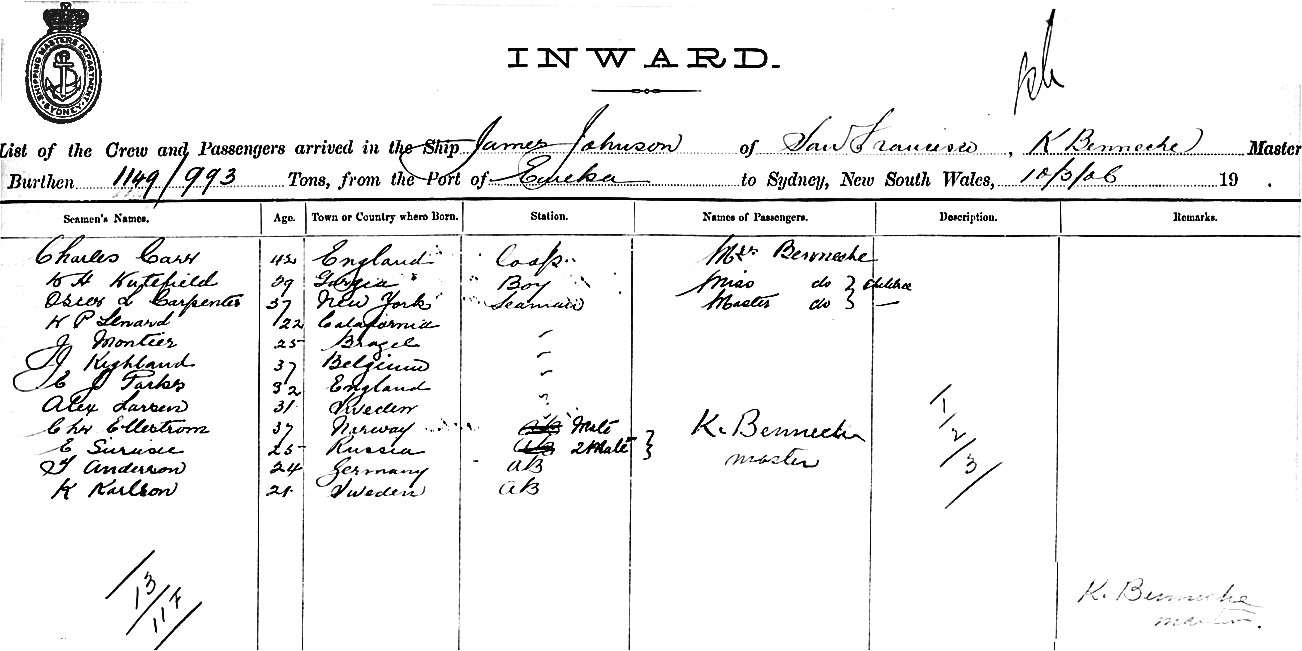 SHIPPING MASTERS DEPARTMENT SYDNEY
INWARD.
List of the Crew and Passengers arrived in the Ship James Johnson of San Francisco, K Bennecke Master
Burthen 1149/993 Tons, from the Port of Eureka to Sydney, New South Wales, 10/5/06 19 .
Seamen's Names. Age. Town or Country where Born. Station. Names of Passengers. Description. Remarks.
Charles Carr 42 England Cook Mrs Bennecke
K H 39 Gorgia Boy Miss do
Carpenter 37 New York Seaman Master do —
K P Lenard 22 Calafornia "
J Montier 25 Brazel "
J Kighland 37 Belgium "
E J Parks 32 England "
Alex Larsen 31 Sweden "
Chr Ellestrom 37 Norway Mate K. Bennecke
E 25 Russia 2 Mate master
F Anderson 24 Germany AB
K Karlson 21 Sweden AB
1/2/3
13/11 F
K. Bennecke
master.